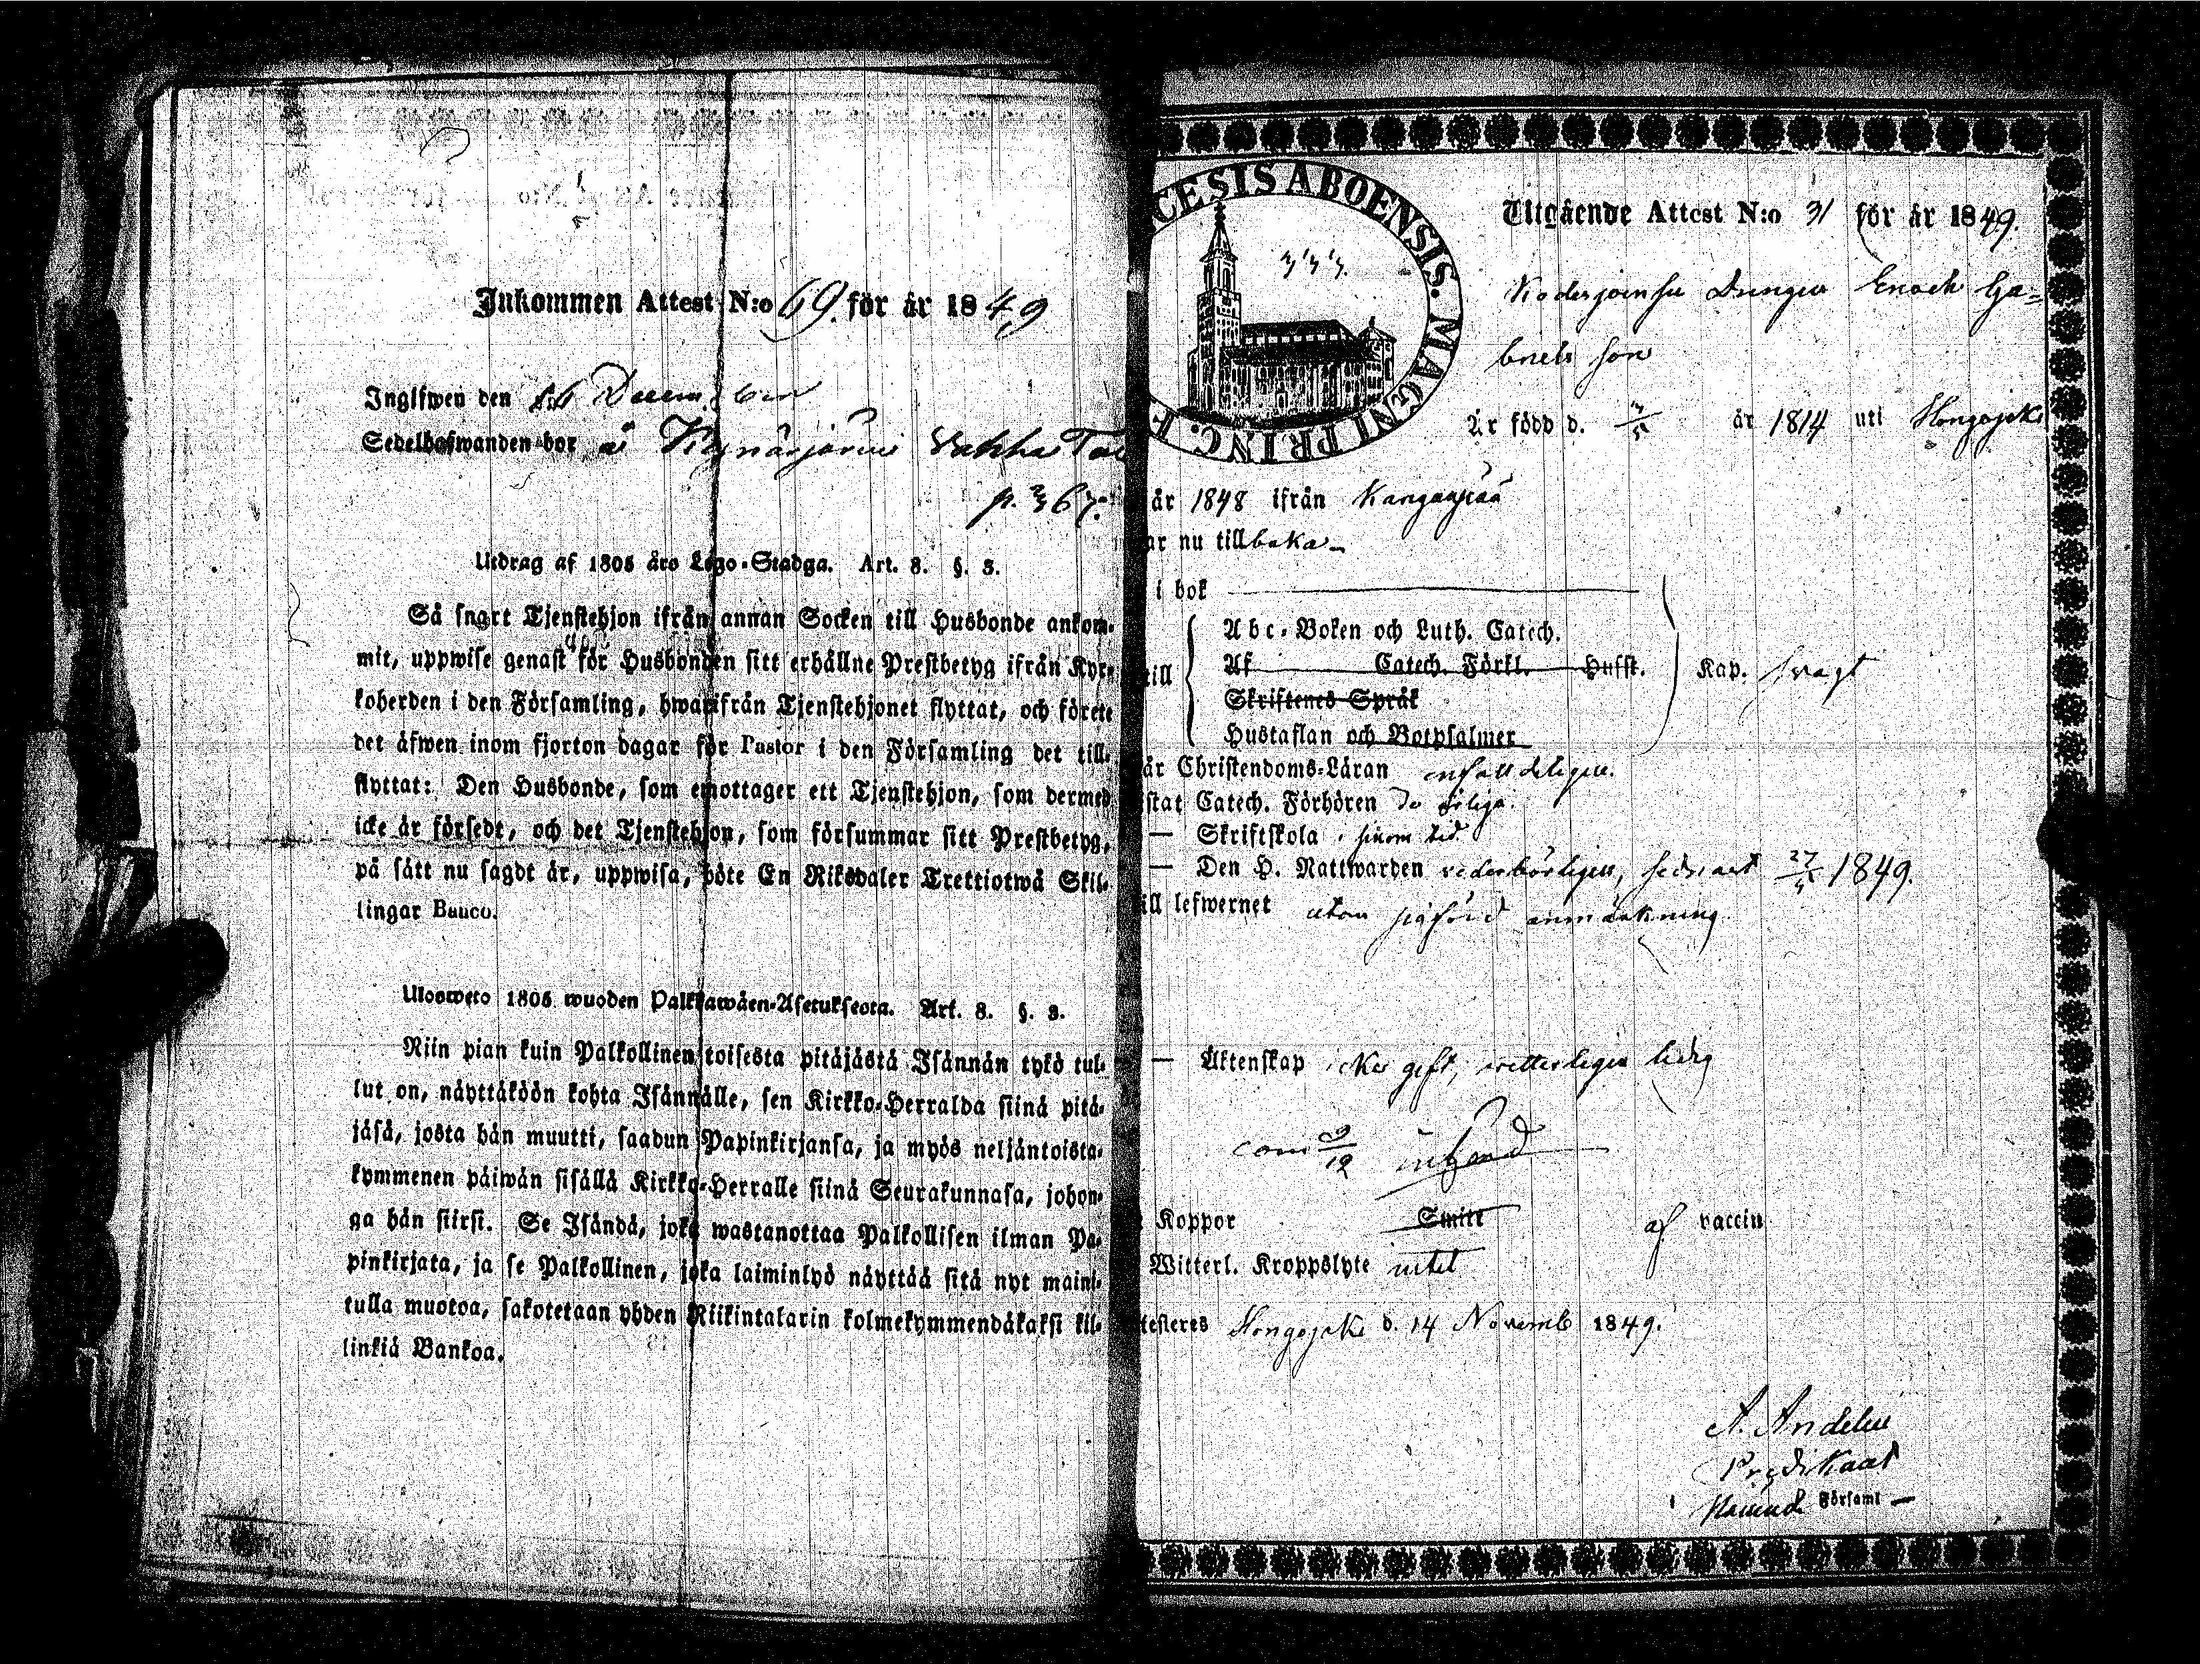 Inkommen Attest N:o 69. för år 1849
Inglifwen den 16 December
Sedelhafwanden bor å Kynäsjärwi
p. 367.
Utdrag af 1805 års Lego-Stadga. Art. 8. §. 3.
Så snart Tjenstehjon ifrån annan Socken till Husbonde ankom-
mit, uppwise genast för Husbonden sitt erhållne Prestbetyg ifrån Kyr-
koherden i den Församling, hwarifrån Tjenstehjonet flyttat, och förete
det äfwen inom fjorton dagar för Pastor i den Församling det till-
flyttat: Den Husbonde, som emottager ett Tjenstehjon, som dermed
icke är försedt, och det Tjenstehjon, som försummar sitt Prestbetyg,
på sätt nu sagdt är, uppwisa, böte En Riksdaler Trettiotwå Skil-
lingar Banco.
Ulosweto 1805 wuoden Palkkawäen-Asetuksesta. Art. 8. §. 3.
Niin pian kuin Palkollinen toisesta pitäjästä Isännän tykö tul-
lut on, näyttäköön kohta Isännälle, sen Kirkko-Herralda siinä pitä-
jäsä, josta hän muutti, saadun Papinkirjansa, ja myös neljäntoista-
kymmenen päiwän sisällä Kirkko-Herralle siinä Seurakunnasa, johon-
ga hän siirsi. Se Isändä, joka wastanottaa Palkollisen ilman Pa-
pinkirjata, ja se Palkollinen, joka laiminlyö näyttää sitä nyt maini-
tulla muotoa, sakotetaan yhden Riikintalarin kolmekymmendäkaksi kil-
linkiä Bankoa.
CESIS ABOENSIS. MAGNI PRINC. F
Utgående Attest N:o 31 för år 1849.
Drängen Enoch Ga=
briels son
Är född d. 3/5 år 1814 uti Hongojoki
år 1848 ifrån Kangaspää
ar nu tillbaka
i bok
Abc-Boken och Luth. Catech.
Af Catech. Förkl. Husst.
till Kap. swagt
Skriftenes Språk
Hustaflan och Botpsalmer
är Christendoms-Läran enfalldeligen.
stat Catech. Förhören do årliga.
— Skriftskola i sinom tid
— Den H. Nattwarden wederbörligen, sednast 27/5 1849.
ill lefwernet utom påförd anmärkning
— Äktenskap icke gift, wetterligen ledig
com 29/12
Koppor Smitt af vaccin
Witterl. Kroppslyte intet
testeres Hongojoki d. 14 Novemb 1849.
A. Andelin
Predikant
Församl —